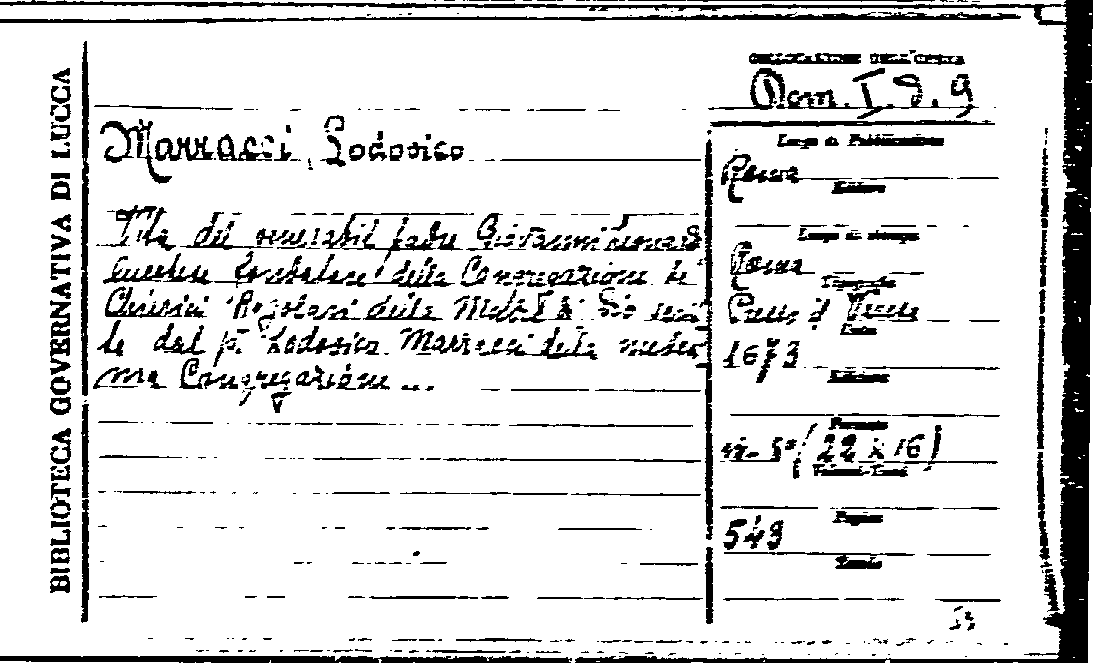 BIBLIOTECA GOVERNATIVA DI LUCCA
COLLOCAZIONE DELL'OPERA
Dom. I. 9. 9
Marracci, Lodovico
Vita del venerabil padre Giovanni Leonardi
lucchese fondatore della Congregazione de
Chierici Regolari della Madre di Dio scrit
ta dal p. Lodovico Marracci della medesi
ma Congregazione ...
Luogo di Pubblicazione
Roma
Editore
Luogo di stampa
Roma
Tipografo
Presso il
Data
1673
Edizione
Formato
in-8° (22 x 16)
Volumi-Tomi
Pagine
543
Tavole